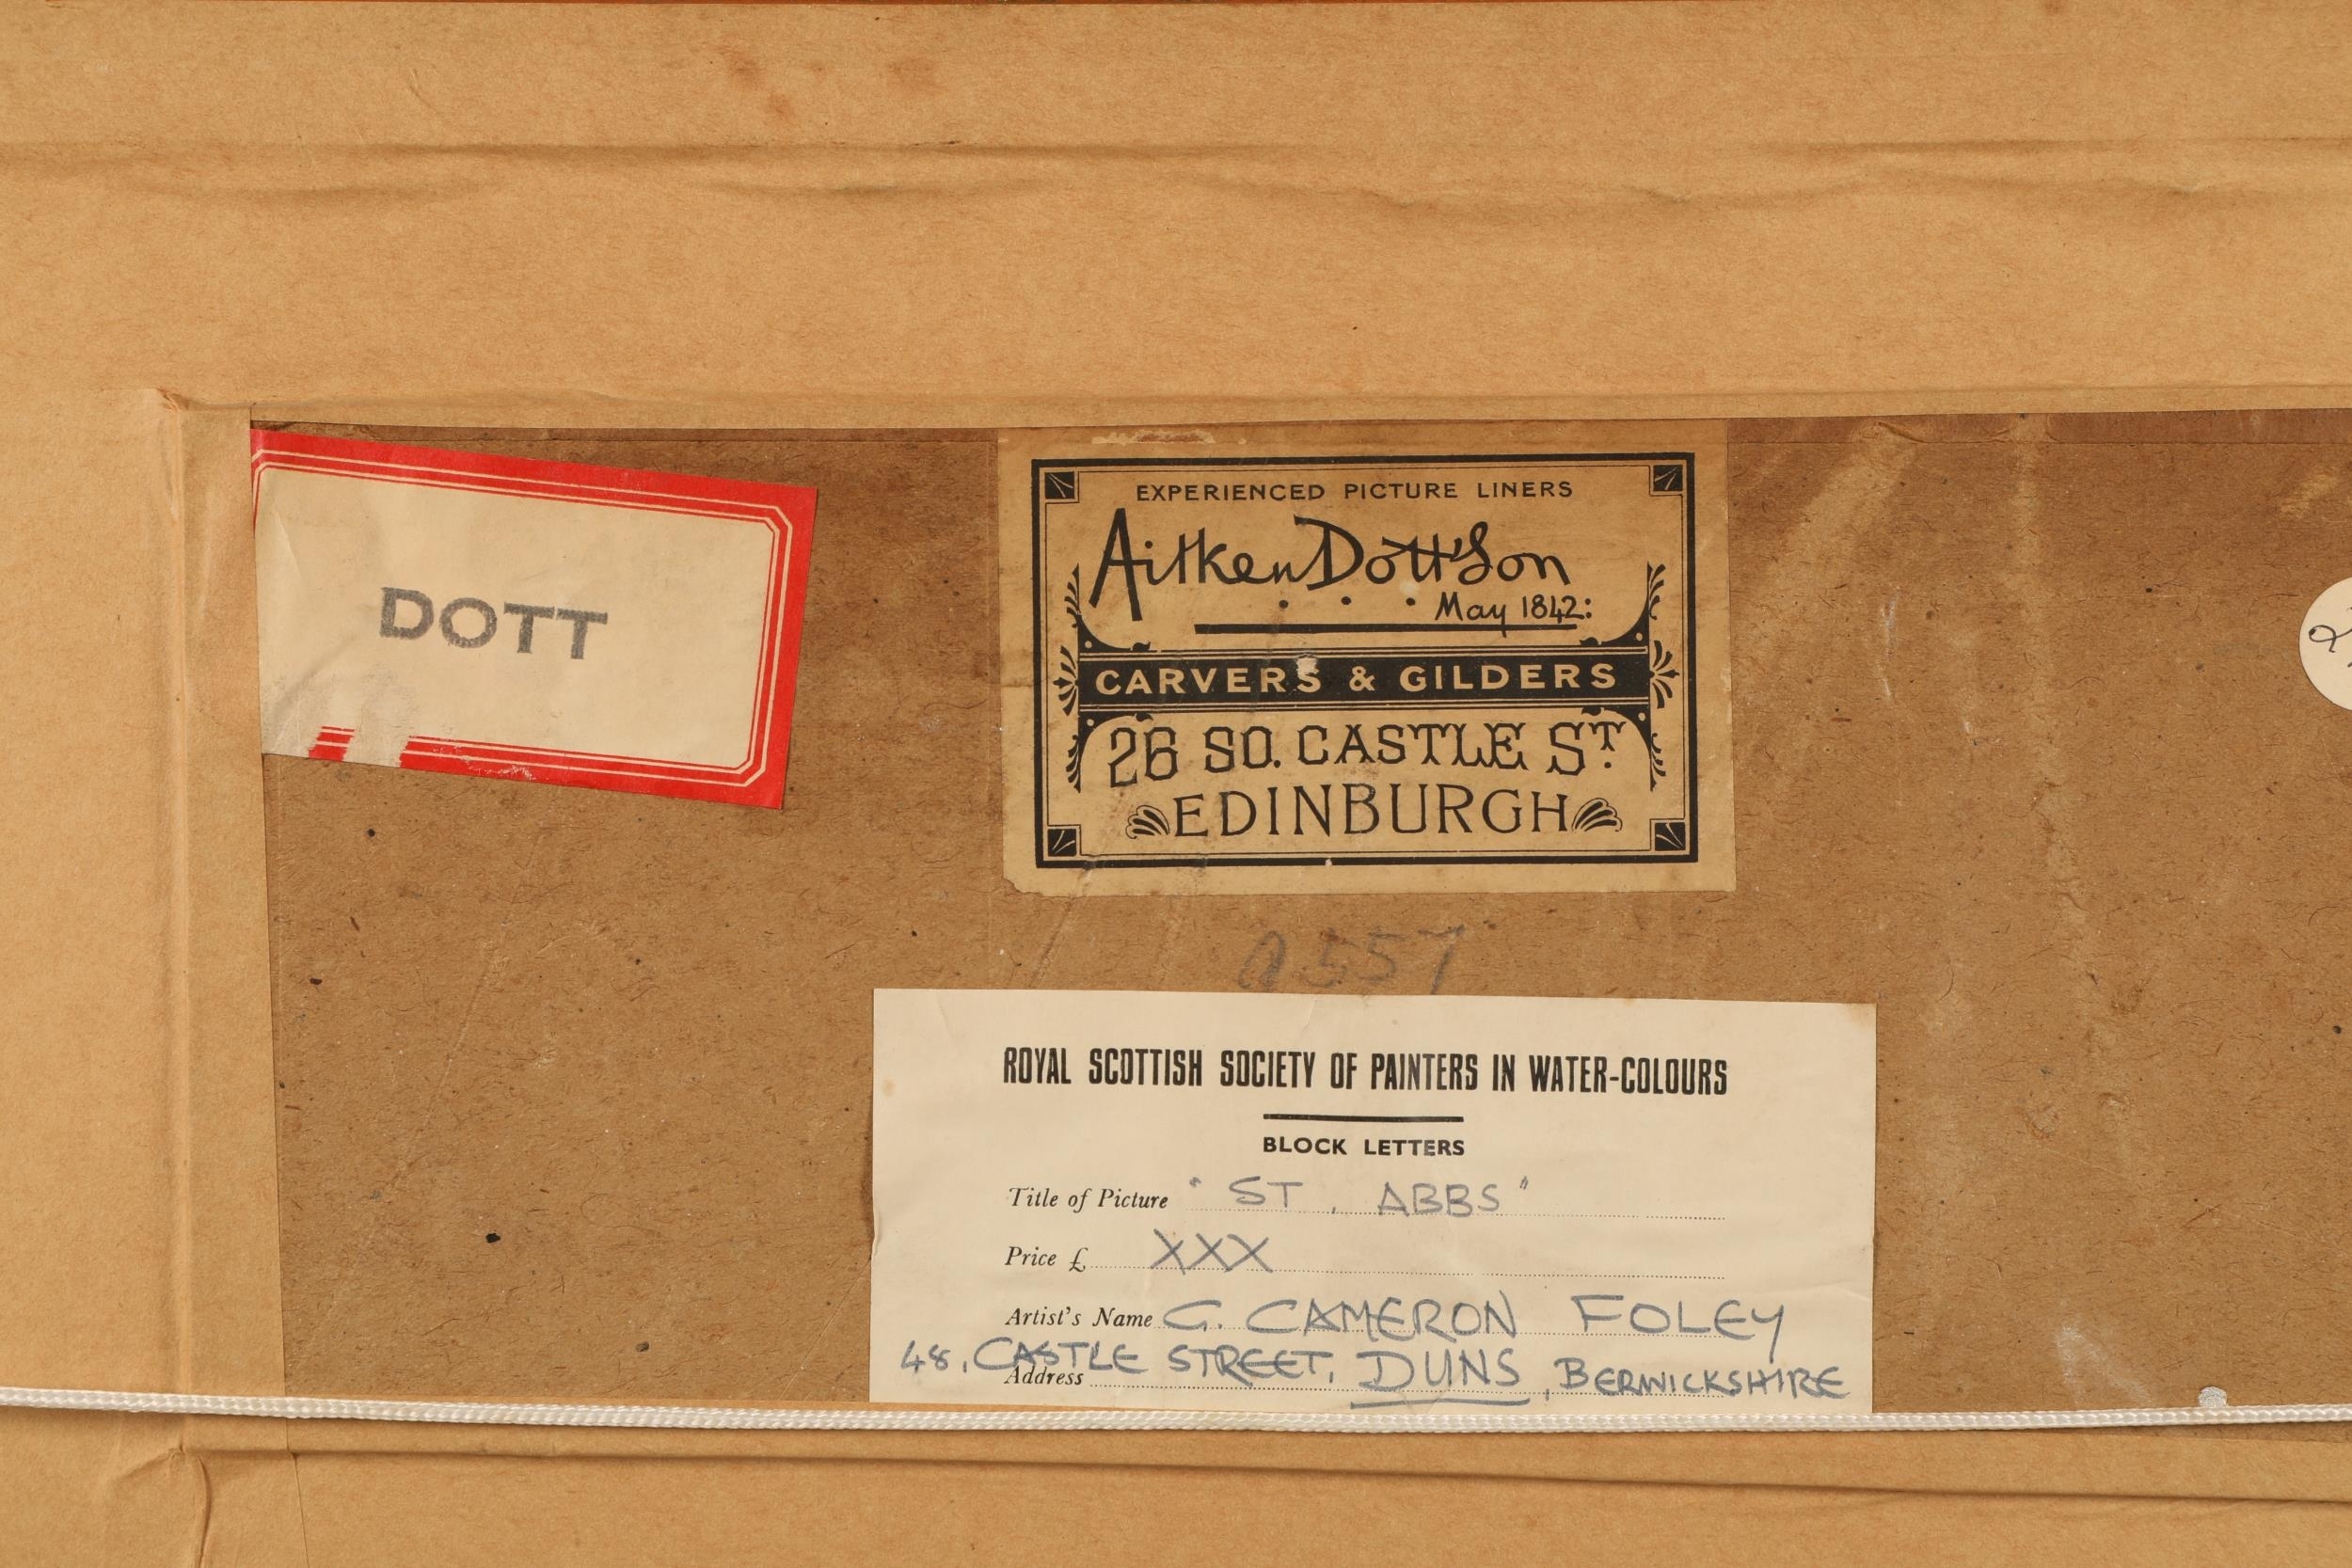 DOTT
EXPERIENCED PICTURE LINERS
Aitken Dott & Son
May 1842:
CARVERS & GILDERS
26 SO. CASTLE ST.
EDINBURGH
ROYAL SCOTTISH SOCIETY OF PAINTERS IN WATER-COLOURS
BLOCK LETTERS
Title of Picture "ST. ABBS"
Price £ XXX
Artist's Name G. CAMERON FOLEY
48, CASTLE STREET, DUNS, BERWICKSHIRE
Address